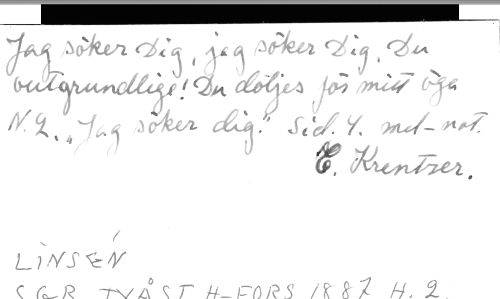 Jag söker Dig, jag söker Dig, Du
outgrundlige! Du döljes för mitt öga
N.L. „Jag söker dig." Sid. 4. mel-not.
E. Krentzer.
LINSÉN
SGR. TVÅST H-FORS 1887 H. 2.